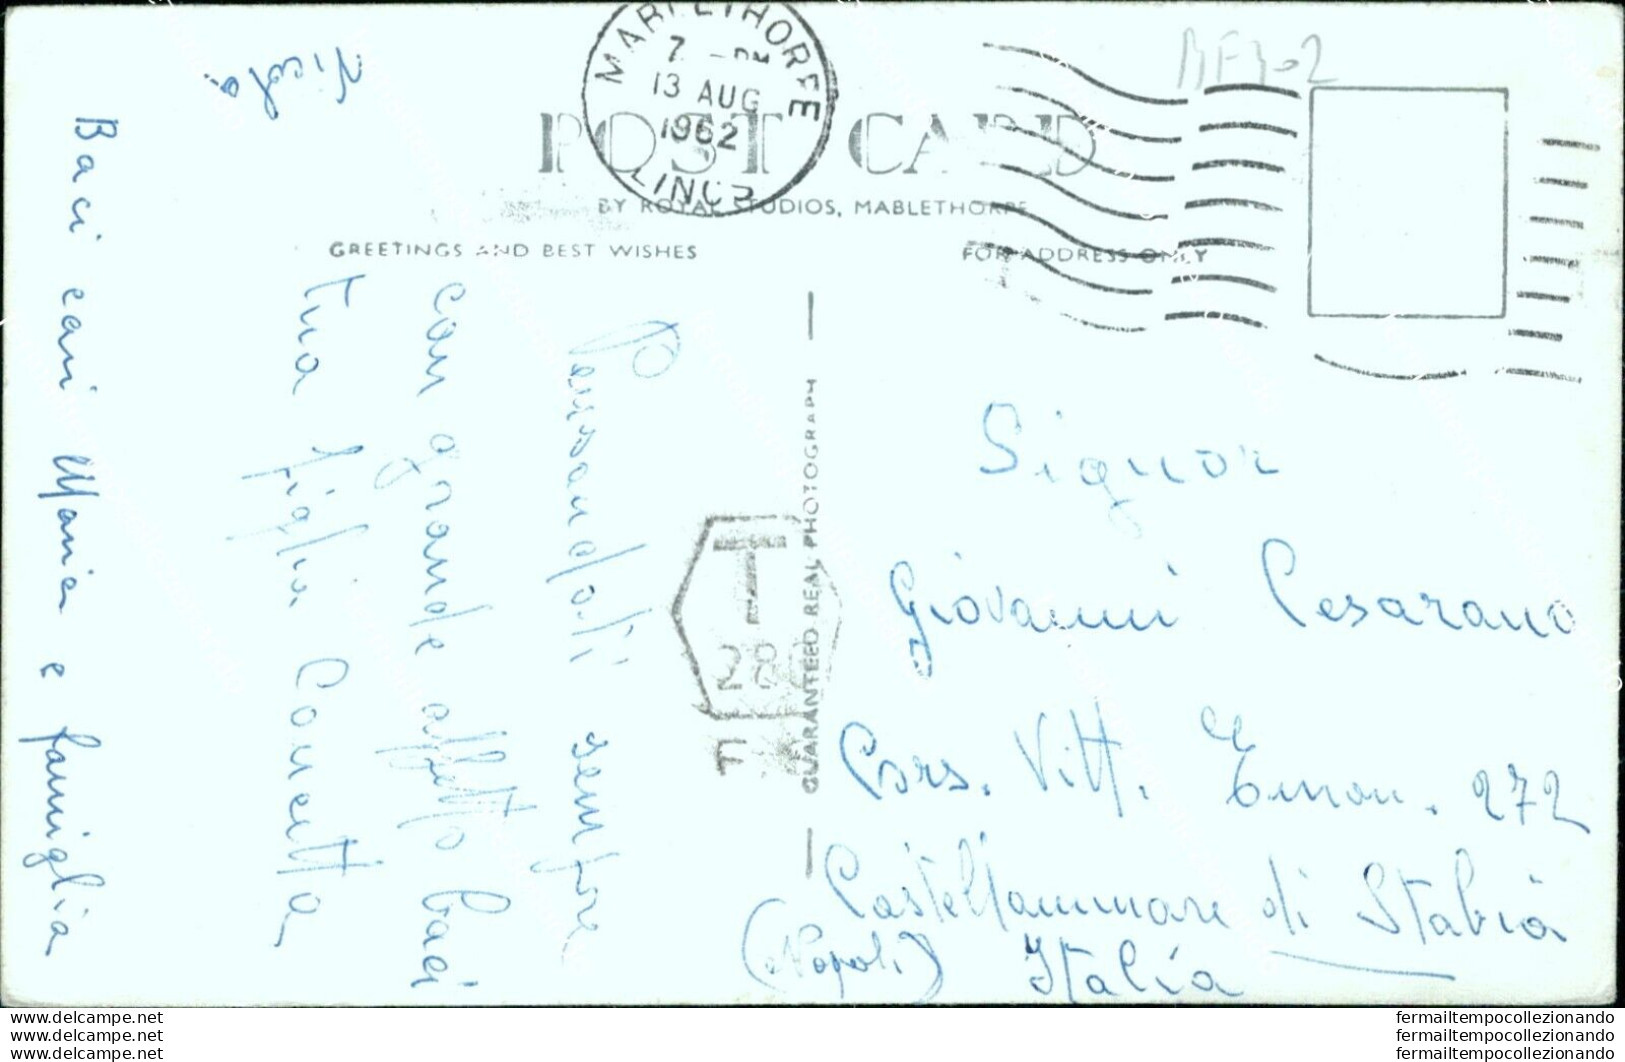 MABLETHORPE
7 - PM
13 AUG
1962
LINCS
POST CARD
BY ROYAL STUDIOS, MABLETHORPE
GREETINGS AND BEST WISHES
FOR ADDRESS ONLY
Pensandoti sempre
con grande affetto baci
tua figlia Concetta
Baci cari Maria e famiglia
Nicola
GUARANTEED REAL PHOTOGRAPH
T
28
F
Signor
Giovanni Cesarano
Cors. Vitt. Eman. 272
Castellammare di Stabia
(Napoli) Italia
www.fermailtempocollezionando.com
www.fermailtempocollezionando.com
www.fermailtempocollezionando.com
fermailtempocollezionando
fermailtempocollezionando
fermailtempocollezionando